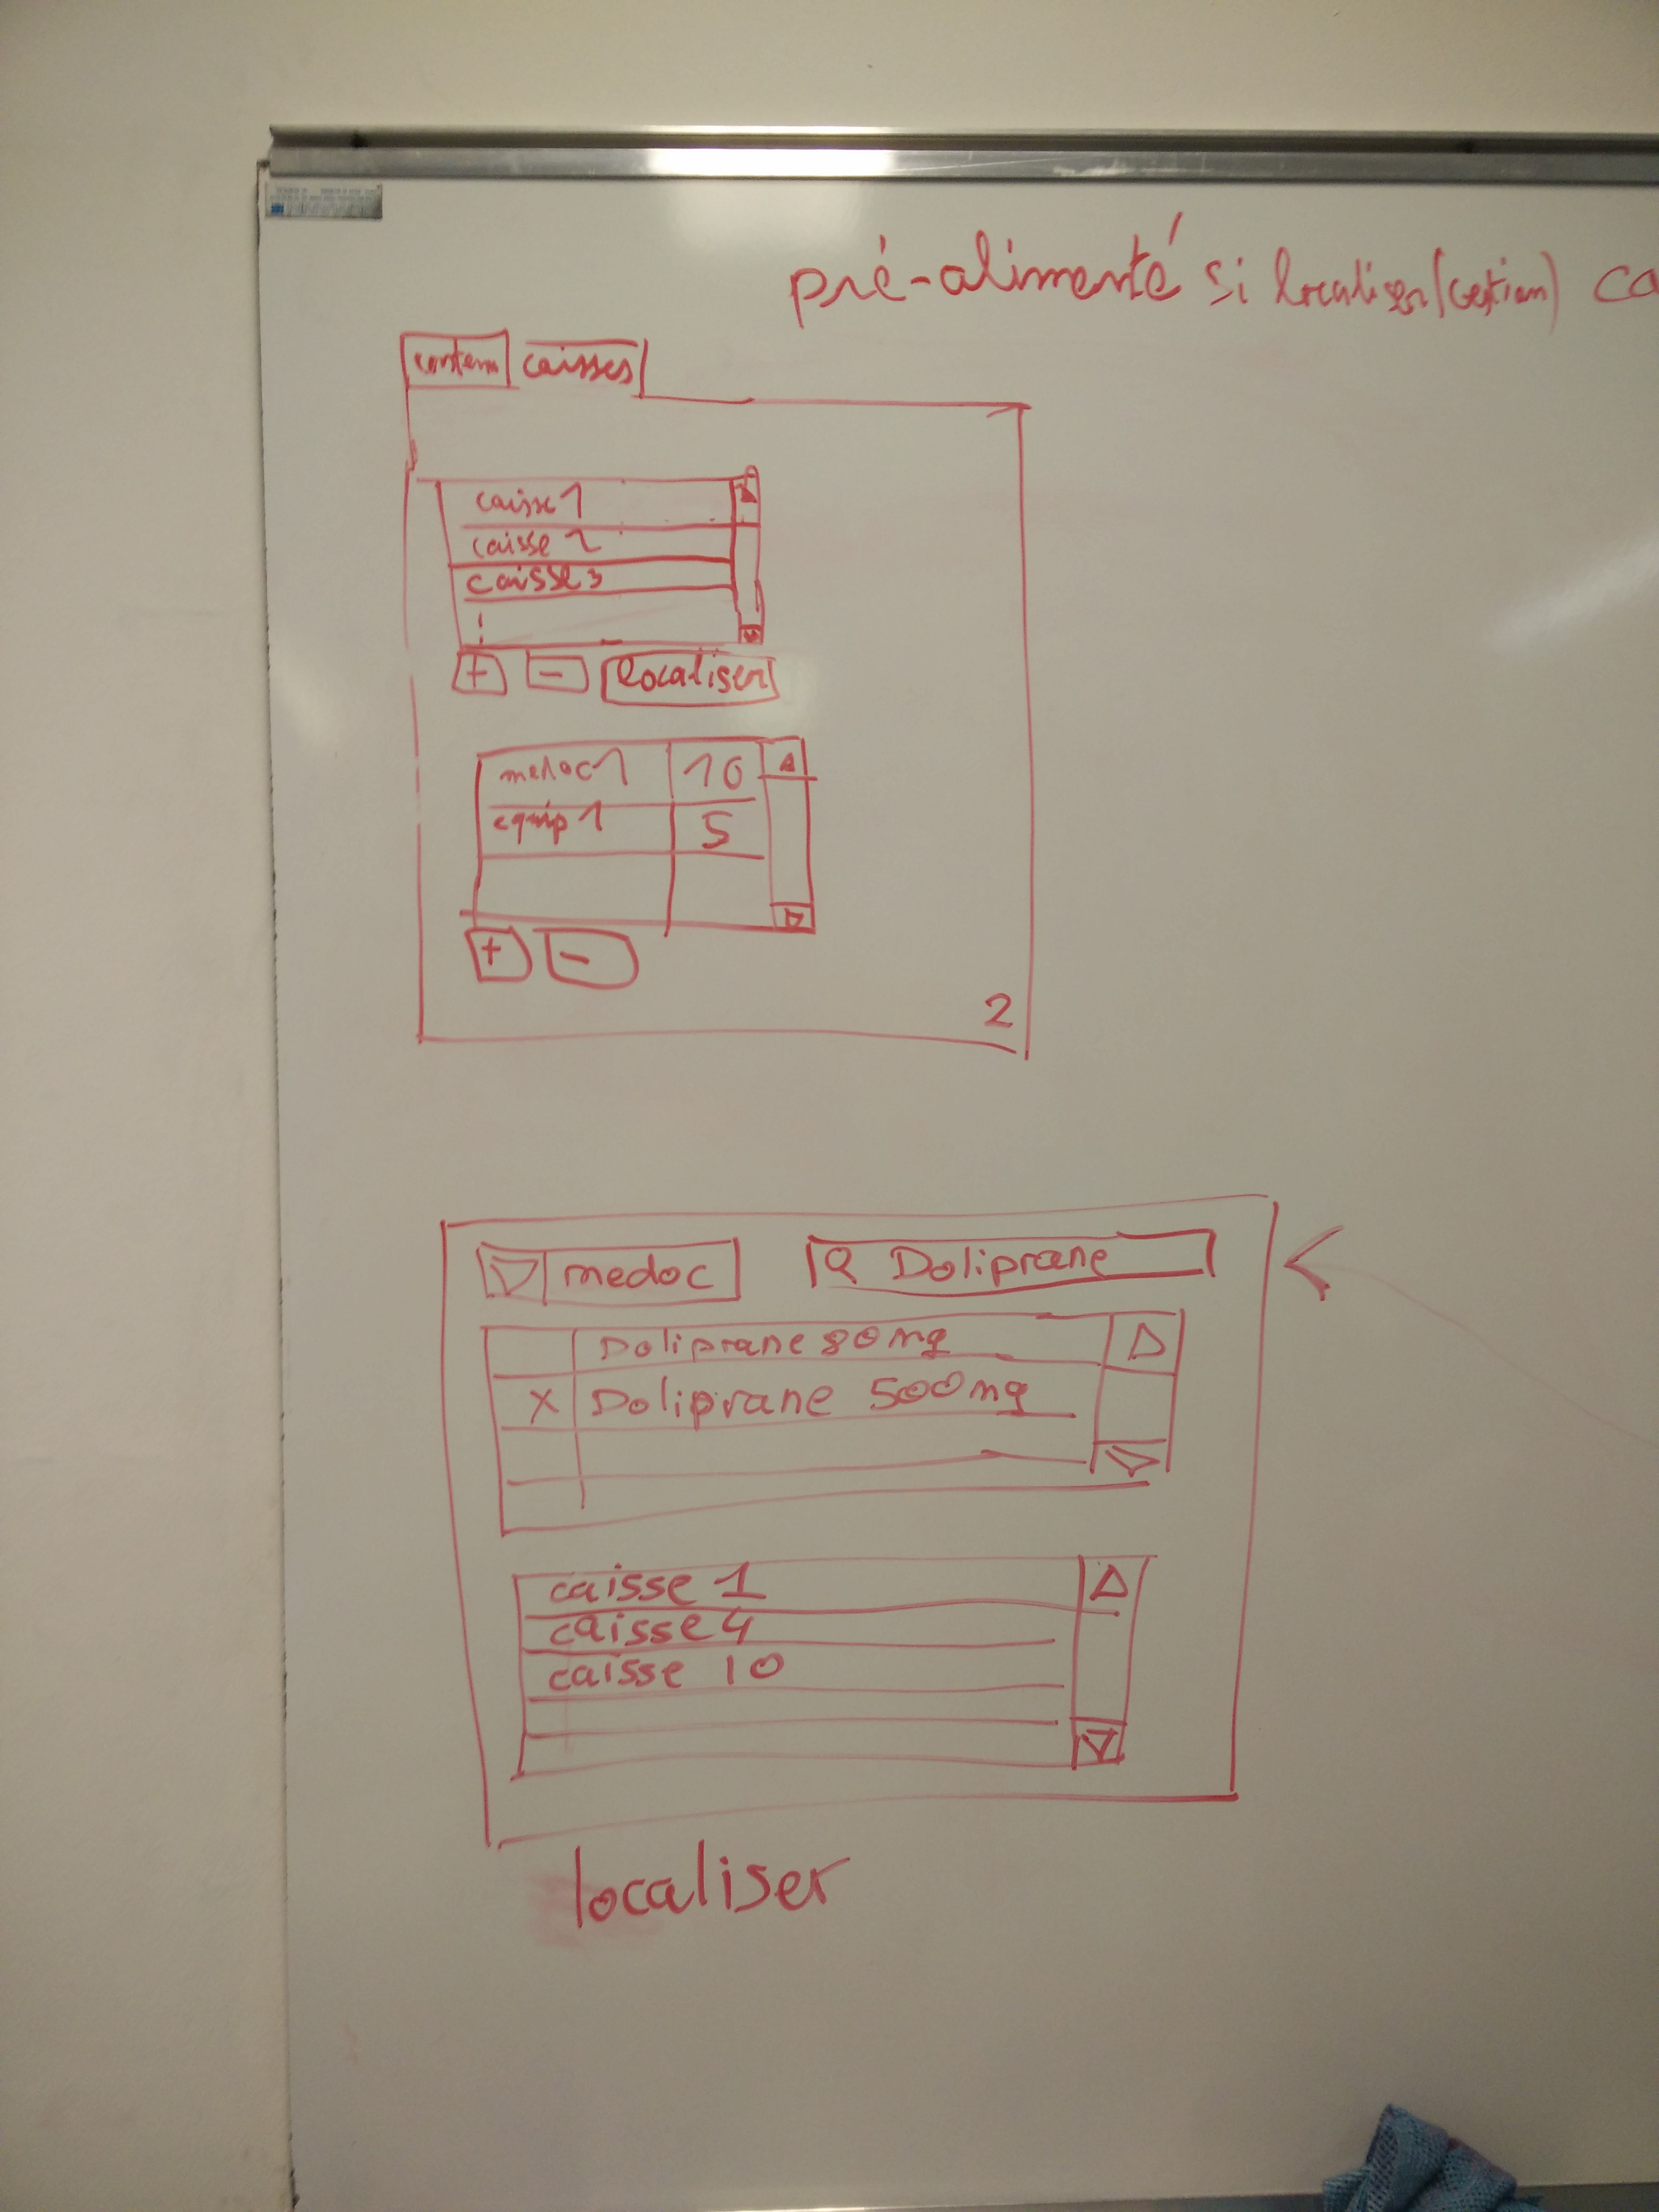 pré-alimenté si localiser (Gestion) ca
contenu caisses
caisse 1
caisse 2
caisse 3
+ - localiser
medoc 1 10
equip 1 5
+ -
2
medoc Doliprane
Doliprane 80mg
X Doliprane 500mg
caisse 1
caisse 4
caisse 10
localiser